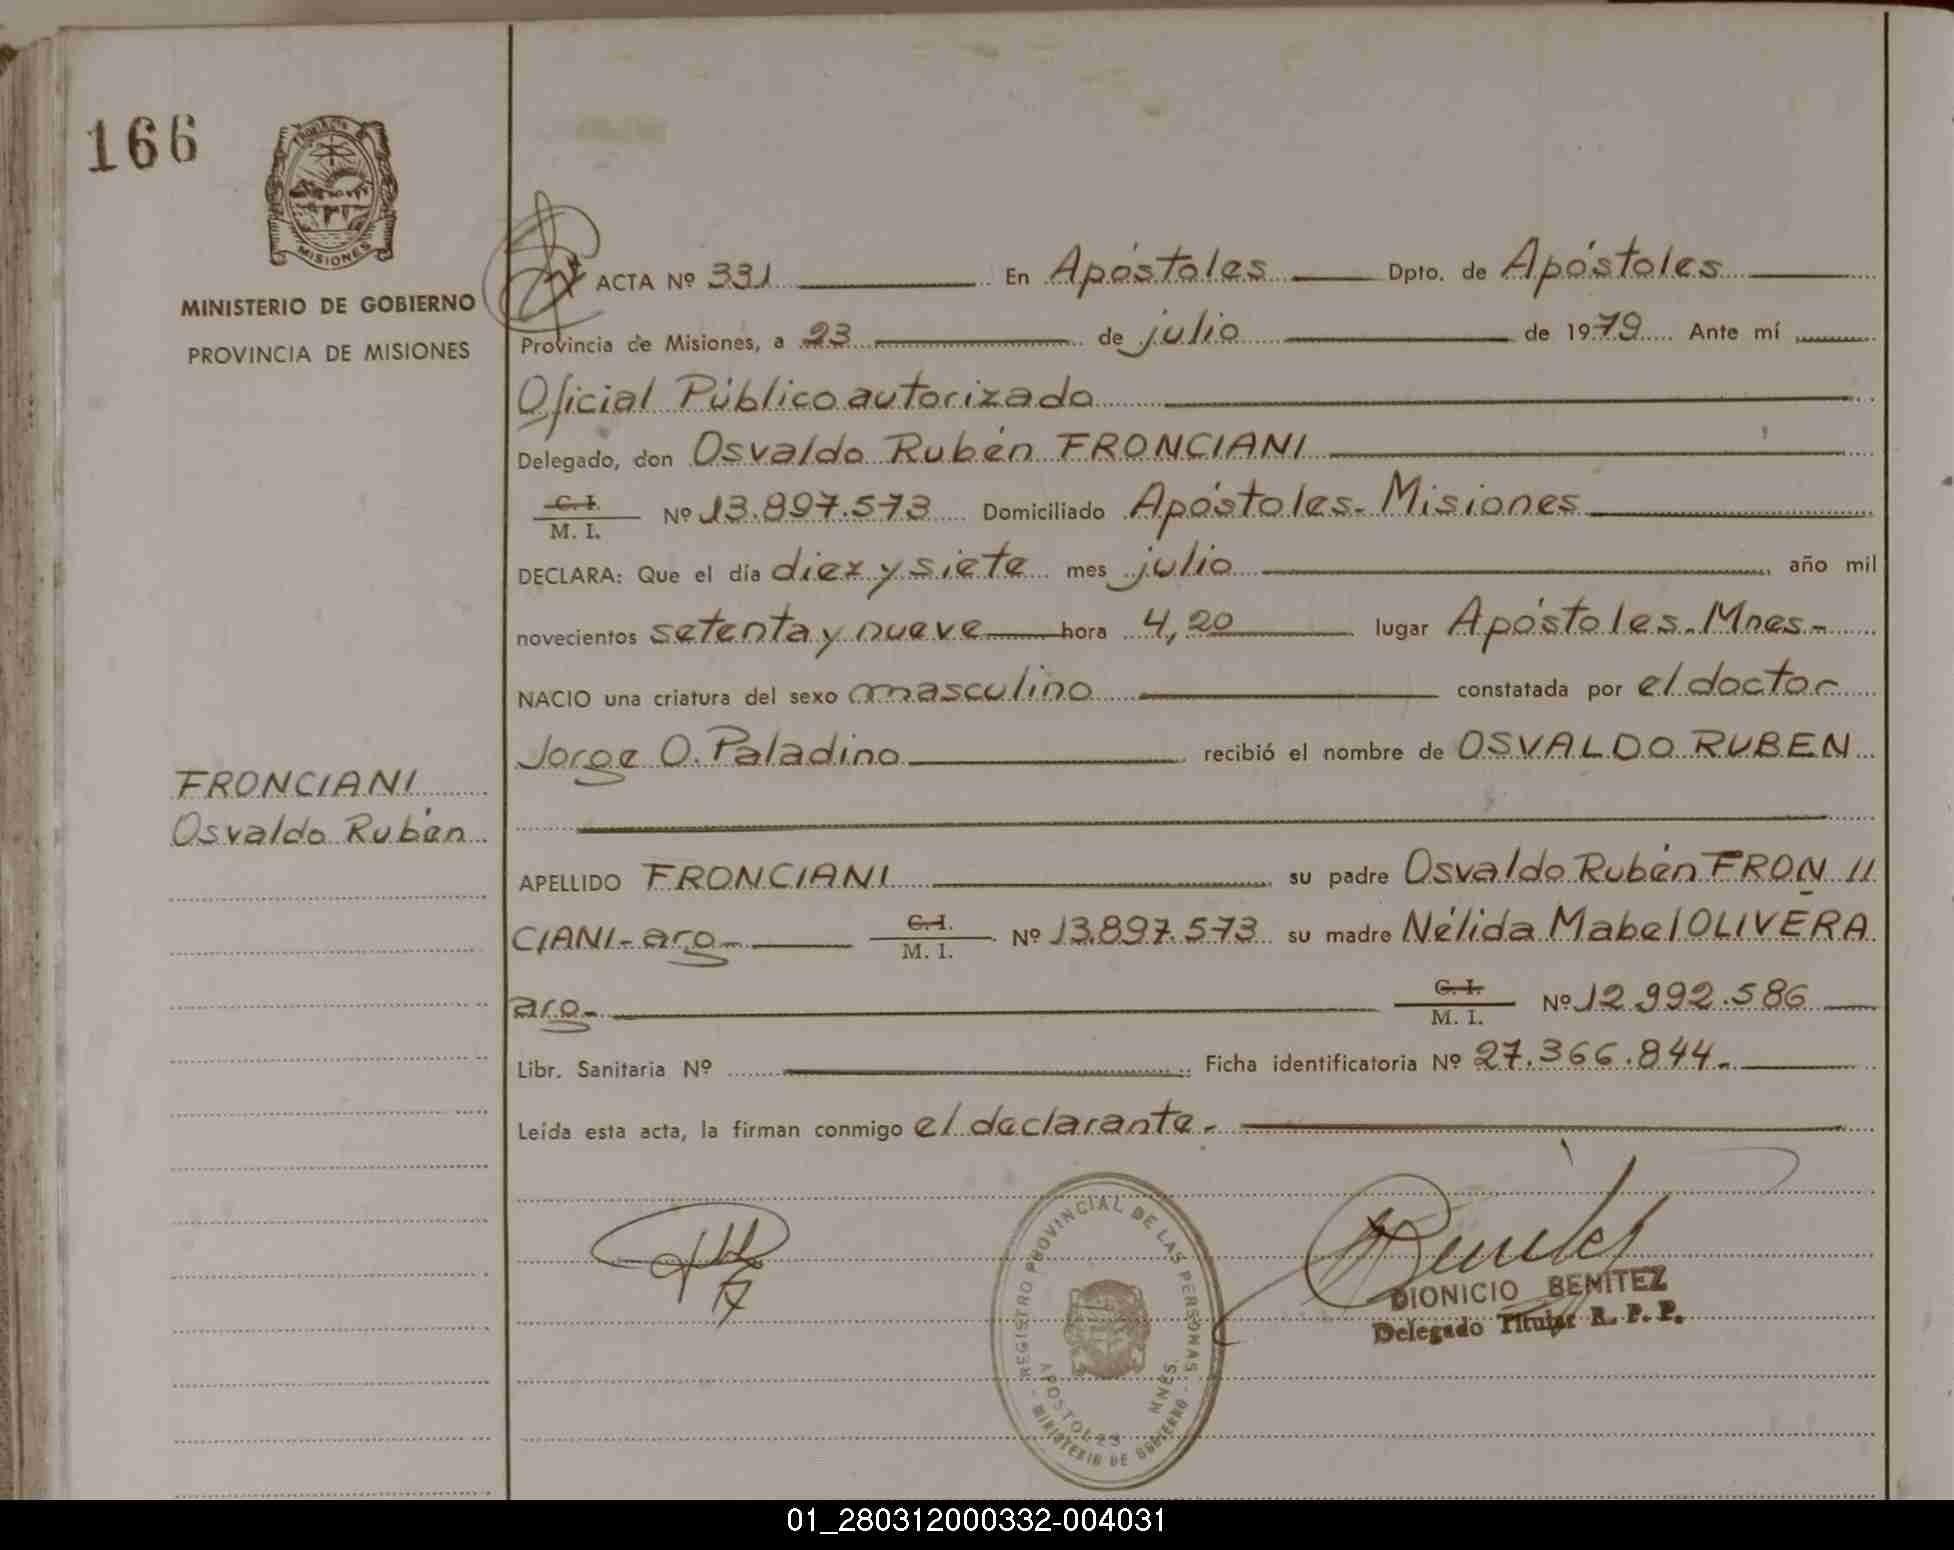 166
PROVINCIA
MISIONES
MINISTERIO DE GOBIERNO
PROVINCIA DE MISIONES
ACTA Nº 331 En Apóstoles Dpto. de Apóstoles
Provincia de Misiones, a 23 de julio de 1979 Ante mí
Oficial Público autorizado
Delegado, don Osvaldo Rubén FRONCIANI
C. I.
M. I. Nº 13.897.573 Domiciliado Apóstoles. Misiones
DECLARA: Que el día diez y siete mes julio año mil
novecientos setenta y nueve hora 4,20 lugar Apóstoles. Mnes.-
NACIO una criatura del sexo masculino constatada por el doctor
Jorge O. Paladino recibió el nombre de OSVALDO RUBEN
FRONCIANI
Osvaldo Rubén
APELLIDO FRONCIANI su padre Osvaldo Rubén FRON 11
CIANI- arg.- C.I. M. I. Nº 13.897.573 su madre Nélida Mabel OLIVERA
arg.- C. I. M. I. Nº 12.992.586
Libr. Sanitaria Nº Ficha identificatoria Nº 27.366.844.-
Leída esta acta, la firman conmigo el declarante.-
REGISTRO PROVINCIAL DE LAS PERSONAS
APOSTOLES MNES.
- MINISTERIO DE GOBIERNO -
DIONICIO BENITEZ
Delegado Titular R. P. P.
01_280312000332-004031